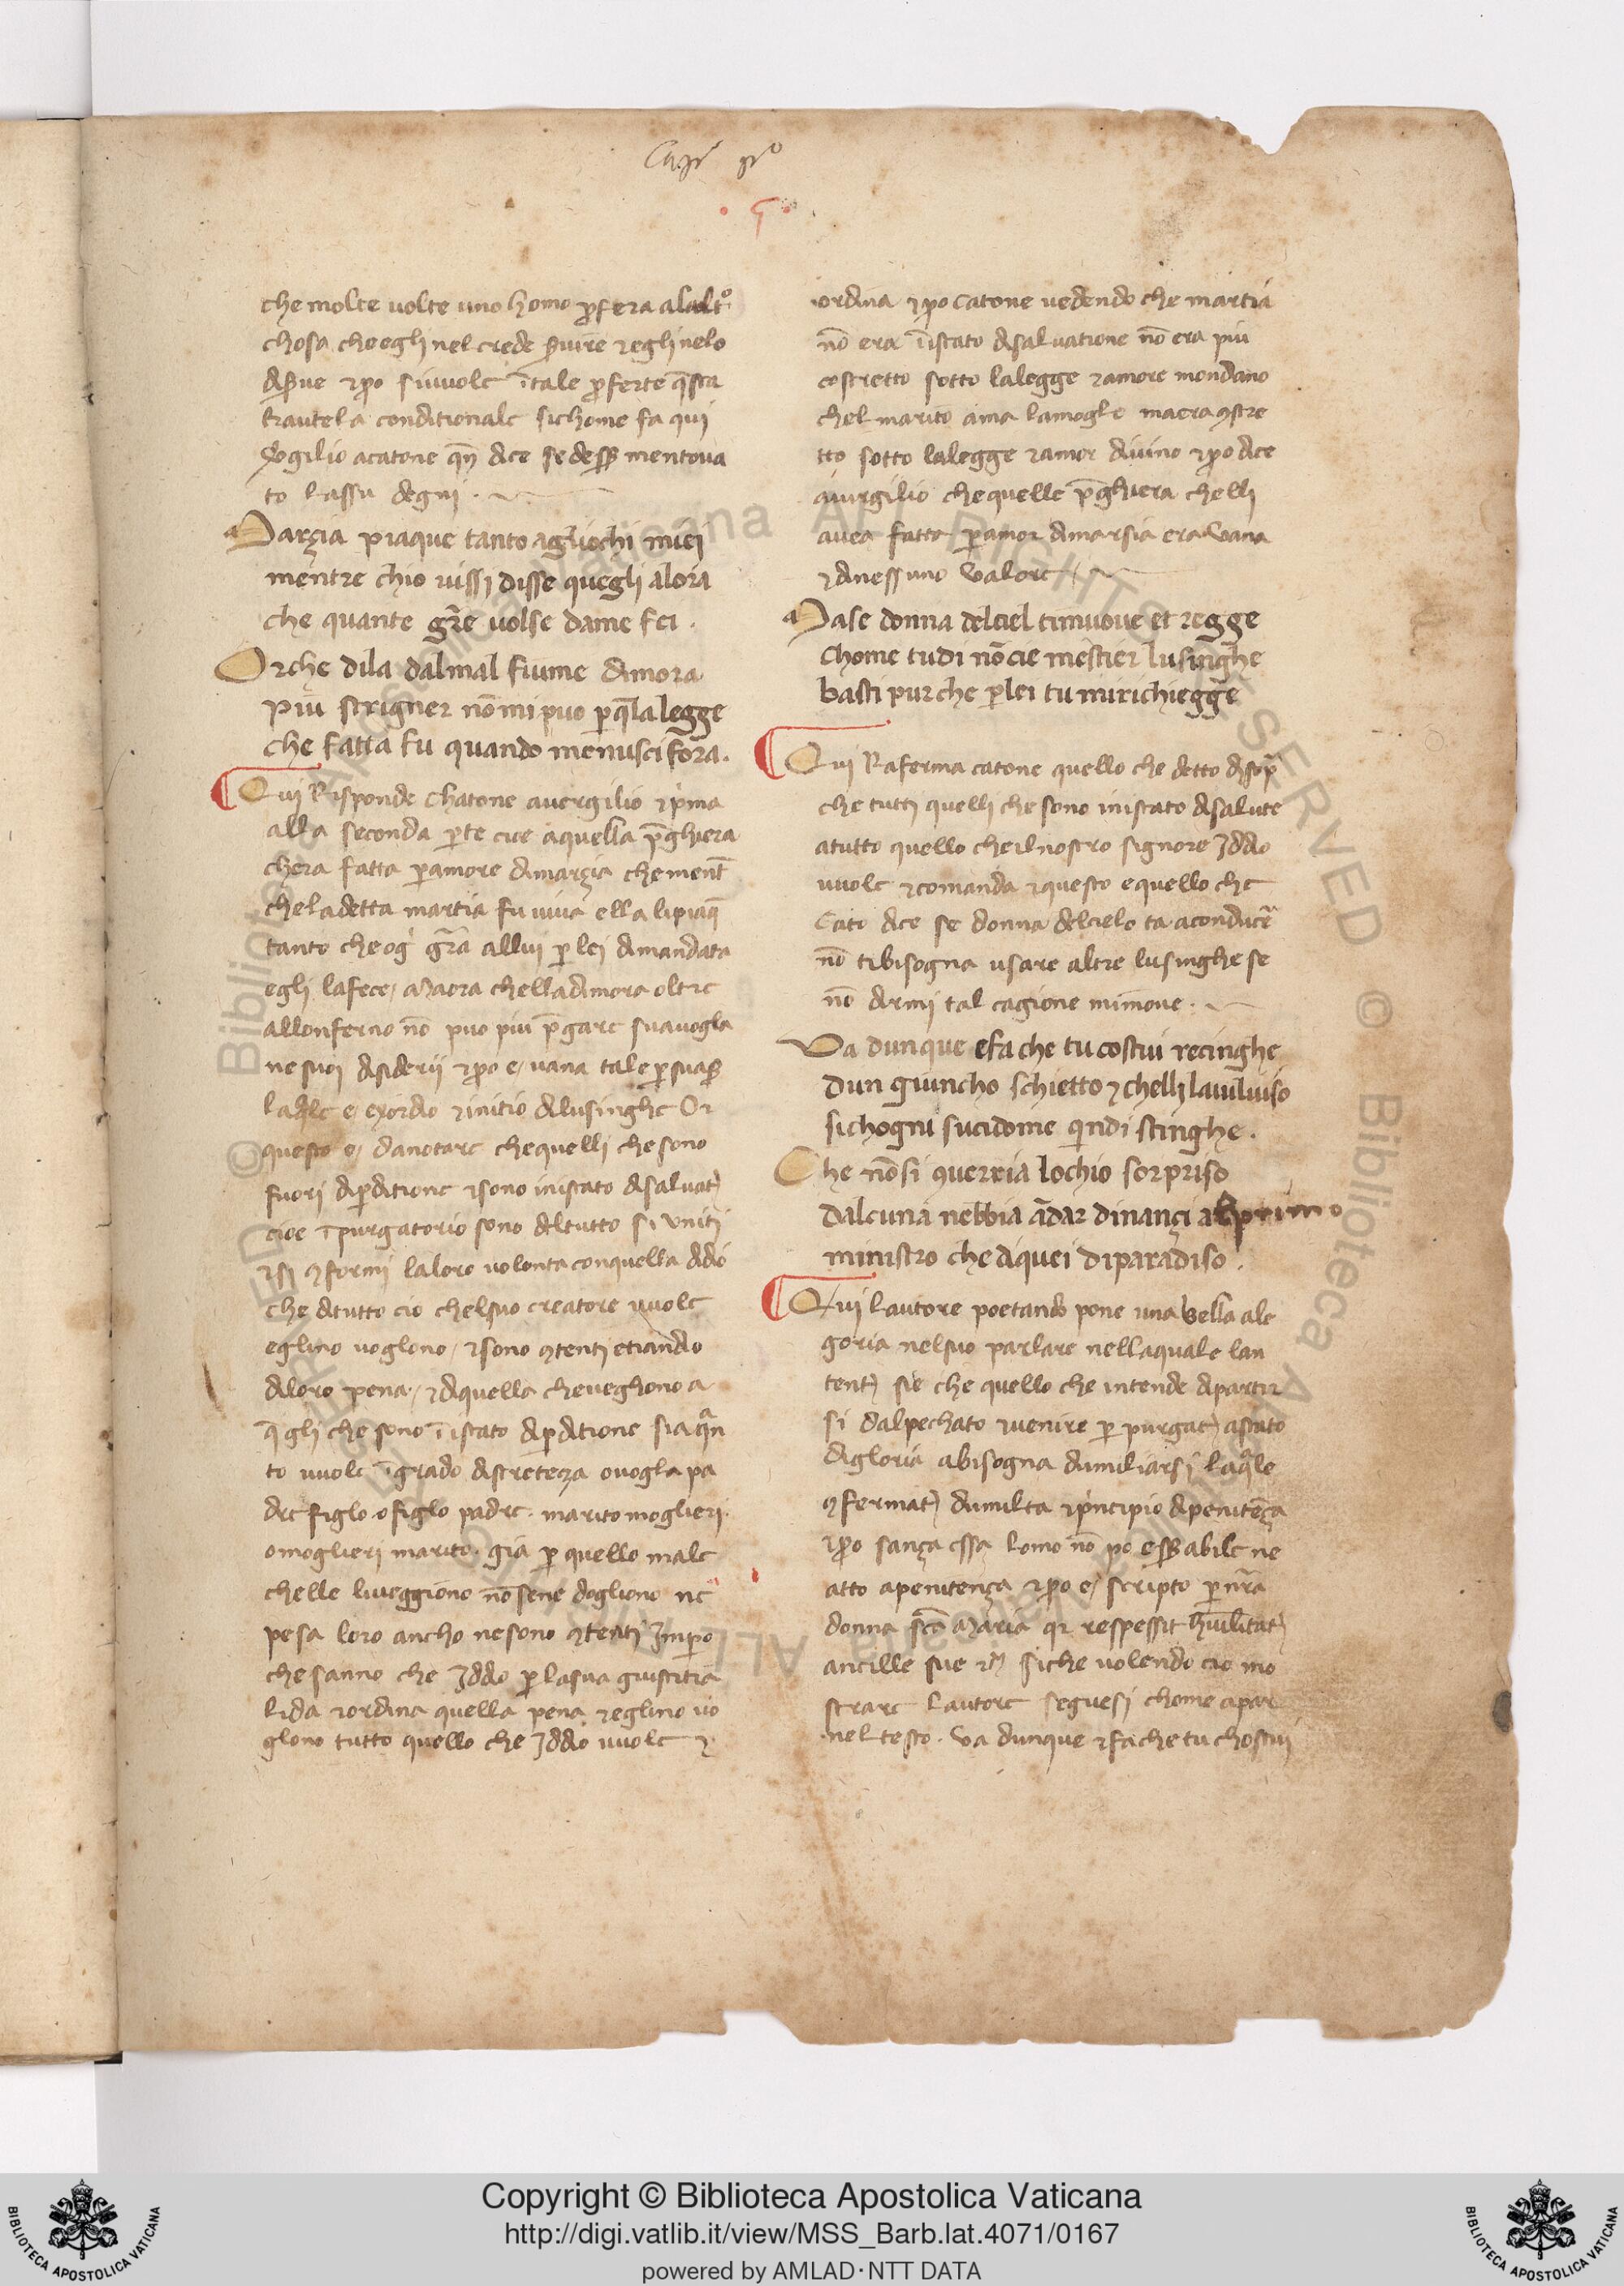 Cap° p°
che molte volte uno homo ꝓfera alalt°
chosa che egli nel crede s̃uire ⁊ egli nelo
dis̃ue ⁊ꝑo siuuole ĩtale ꝓferte q̃sta
trautela conditionale sichome fa qui
Ṽgilio acatone qñ dice se dess̃ mentoua
to lassu degni .
Marçia piaque tanto agliochi miei
mentre chio uissi disse quegli alora
che quante gr̃e uolse dame fei .
Or che dila dalmal fiume dimora
piu strigner nõ mi puo ꝑ q̃la legge
che fatta fu quando menusci fora .
Qui Risponde Chatone auergilio ⁊ pͥma
alla seconda ꝑte cioe aquella p̃ghiera
chera fatta ꝑ amore dimarçia che ment̃
che la detta martia fu uiua ella li piaq̃
tanto che og̃ gr̃a allui ꝑ lei dimandata
egli lafece / Maora chella dimora oltre
allonferno nõ puo piu p̃gare sua uogla
ne suoi disiderii ⁊ꝑo e / uana tale ꝑsuas̃
laq̃le e / exordio ⁊ initio dilusinghe Or
questo e / danotare che quelli che sono
fuori diꝑditione ⁊ sono inistato disaluat̃
cioe ĩ purgatorio sono deltutto si uniti
⁊ si ꝯformi laloro uolonta conquella didio
che ditutto cio chelsuo creatore uuole
eglino uoglono / ⁊ sono ꝯtenti etiandio
diloro pena / ⁊ diquella che ueghono a
q̃gli che sono ĩ istato diꝑditione sia q̃n
to uuole ĩ grado distretezza ouogla pa
dre figlo o figlo padre . marito moglieri .
o moglieri marito . gia ꝑ quello male
chelle liueggiono nõ sene dogliono ne
pesa loro ancho nesono ꝯtenti Imꝑo
che sanno che Iddio ꝑ la sua giustitia
lida ⁊ ordina quella pena ⁊ eglino uo
glono tutto quello che Iddio uuole ⁊
ordina ⁊ꝑo Catone uedendo che martia
nõ era ĩ istato disaluatione nõ era piu
costretto sotto lalegge ⁊ amore mondano
chel marito ama la mogle ma era ꝯstre
tto sotto lalegge ⁊ amor diuino ⁊ꝑo dice
auirgilio che quelle p̃ghiera chelli
auea fatta ꝑ amor di marsia era vana
⁊ dinessuno valore /
Mase donna delciel timuoue et regge
Chome tu di nõ cie mestier lusinghe
basti pur che ꝑ lei tu mirichiegge
Qui Raferma catone quello che detto disop̃
che tutti quelli che sono inistato disalute
atutto quello cheilnostro signore Iddio
uuole ⁊ comanda ⁊ questo e quello che
Cato dice se donna delcielo ta aconduc̃e
nõ tibisogna usare altre lusinghe se
nõ dirmi tal cagione mimoue .
Va dunque e fa che tu costui recinghe
dun giuncho schietto ⁊ chelli laui luiso
sichogni sucidome quindi stinghe .
Che nõ si ꝯuerria lochio sorpriso
dalcuna nebbia ãdar dinançi al primo
ministro che diquei di paradiso .
Qui lautore poetando pone una bella ale
goria nelsuo parlare nella quale lan
tent̃ sie che quello che intende dipartir
si dalpechato ⁊ uenire ꝑ purgat̃ astato
digloria abisogna dumiliarsi laq̃le
ꝯfermat̃ dumilta ⁊ pͥncipio dipenitẽça
⁊ꝑo sança essa lomo nõ po ess̃ abile ne
atto apenitença ⁊ꝑo e / scripto ꝑ nr̃a
donna sc̃a Maria qr respessit hũilitat̃
ancille sue ⁊c̃ siche uolendo cio mo
strare lautore seguesi chome apar
nel testo . Va dunque ⁊ fa che tu chostui
© Biblioteca Apostolica Vaticana ALL RIGHTS RESERVED © Biblioteca Apostolica Vaticana ALL RIGHTS RESERVED
Copyright © Biblioteca Apostolica Vaticana
http://digi.vatlib.it/view/MSS_Barb.lat.4071/0167
powered by AMLAD·NTT DATA
BIBLIOTECA APOSTOLICA VATICANA
BIBLIOTECA APOSTOLICA VATICANA